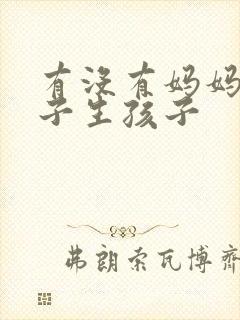 有没有妈妈
子生孩子
弗朗索瓦博齐